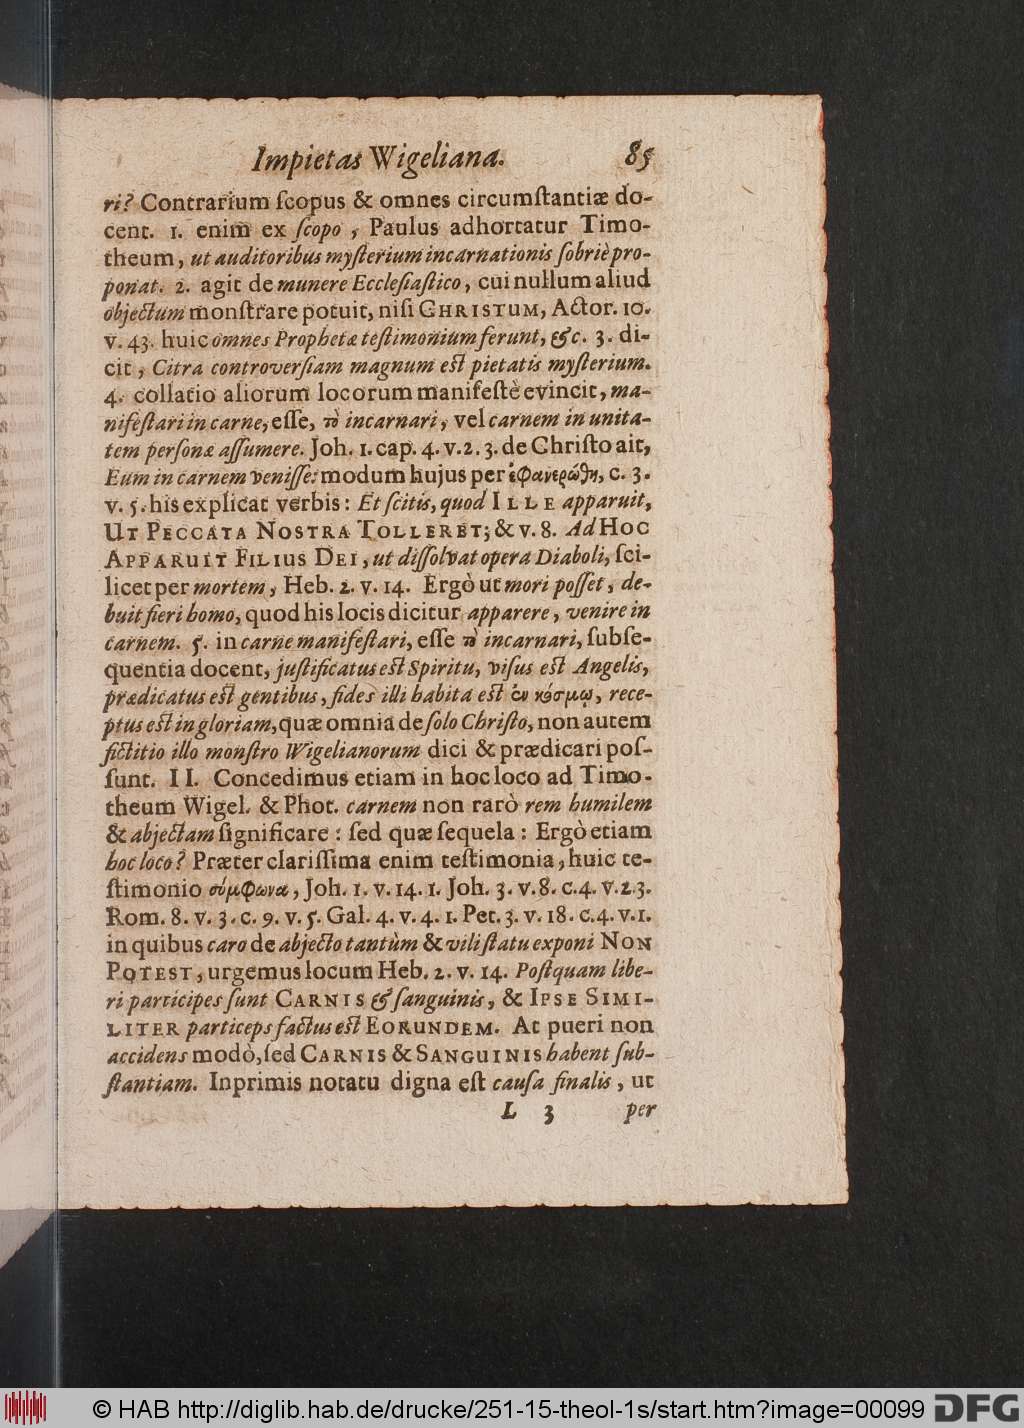 Impietas Wigeliana. 85
ri? Contrarium ſcopus & omnes circumſtantiæ do-
cent. 1. enim ex ſcopo, Paulus adhortatur Timo-
theum, ut auditoribus myſterium incarnationis ſobriè pro-
ponat. 2. agit de munere Eccleſiaſtico, cui nullum aliud
objectum monſtrare potuit, niſi CHRISTUM, Actor. 10.
v. 43. huic omnes Prophetæ teſtimonium ferunt, &c. 3. di-
cit, Citra controverſiam magnum eſt pietatis myſterium.
4. collatio aliorum locorum manifeſtè evincit, ma-
nifeſtari in carne, eſſe, τὸ incarnari, vel carnem in unita-
tem perſonæ aſſumere. Joh. 1. cap. 4. v. 2. 3. de Chriſto ait,
Eum in carnem veniſſe: modum hujus per ἐφανερώθη, c. 3.
v. 5. his explicat verbis: Et ſcitis, quod ILLE apparuit,
UT PECCATA NOSTRA TOLLERET; & v. 8. Ad HOC
APPARUIT FILIUS DEI, ut diſſolvat opera Diaboli, ſci-
licet per mortem, Heb. 2. v. 14. Ergò ut mori poſſet, de-
buit fieri homo, quod his locis dicitur apparere, venire in
carnem. 5. in carne manifeſtari, eſſe τὸ incarnari, ſubſe-
quentia docent, juſtificatus eſt Spiritu, viſus eſt Angelis,
prædicatus eſt gentibus, fides illi habita eſt ἐν κόσμῳ, rece-
ptus eſt in gloriam, quæ omnia de ſolo Chriſto, non autem
fictitio illo monſtro Wigelianorum dici & prædicari poſ-
ſunt. II. Concedimus etiam in hoc loco ad Timo-
theum Wigel. & Phot. carnem non rarò rem humilem
& abjectam ſignificare: ſed quæ ſequela: Ergò etiam
hoc loco? Præter clariſſima enim teſtimonia, huic te-
ſtimonio σύμφωνα, Joh. 1. v. 14. 1. Joh. 3. v. 8. c. 4. v. 2. 3.
Rom. 8. v. 3. c. 9. v. 5. Gal. 4. v. 4. 1. Pet. 3. v. 18. c. 4. v. 1.
in quibus caro de abjecto tantùm & vili ſtatu exponi NON
POTEST, urgemus locum Heb. 2. v. 14. Poſtquam libe-
ri participes ſunt CARNIS & ſanguinis, & IPSE SIMI-
LITER particeps factus eſt EORUNDEM. At pueri non
accidens modò, ſed CARNIS & SANGUINIS habent ſub-
ſtantiam. Inprimis notatu digna eſt cauſa finalis, ut
L 3 per
© HAB http://diglib.hab.de/drucke/251-15-theol-1s/start.htm?image=00099
DFG